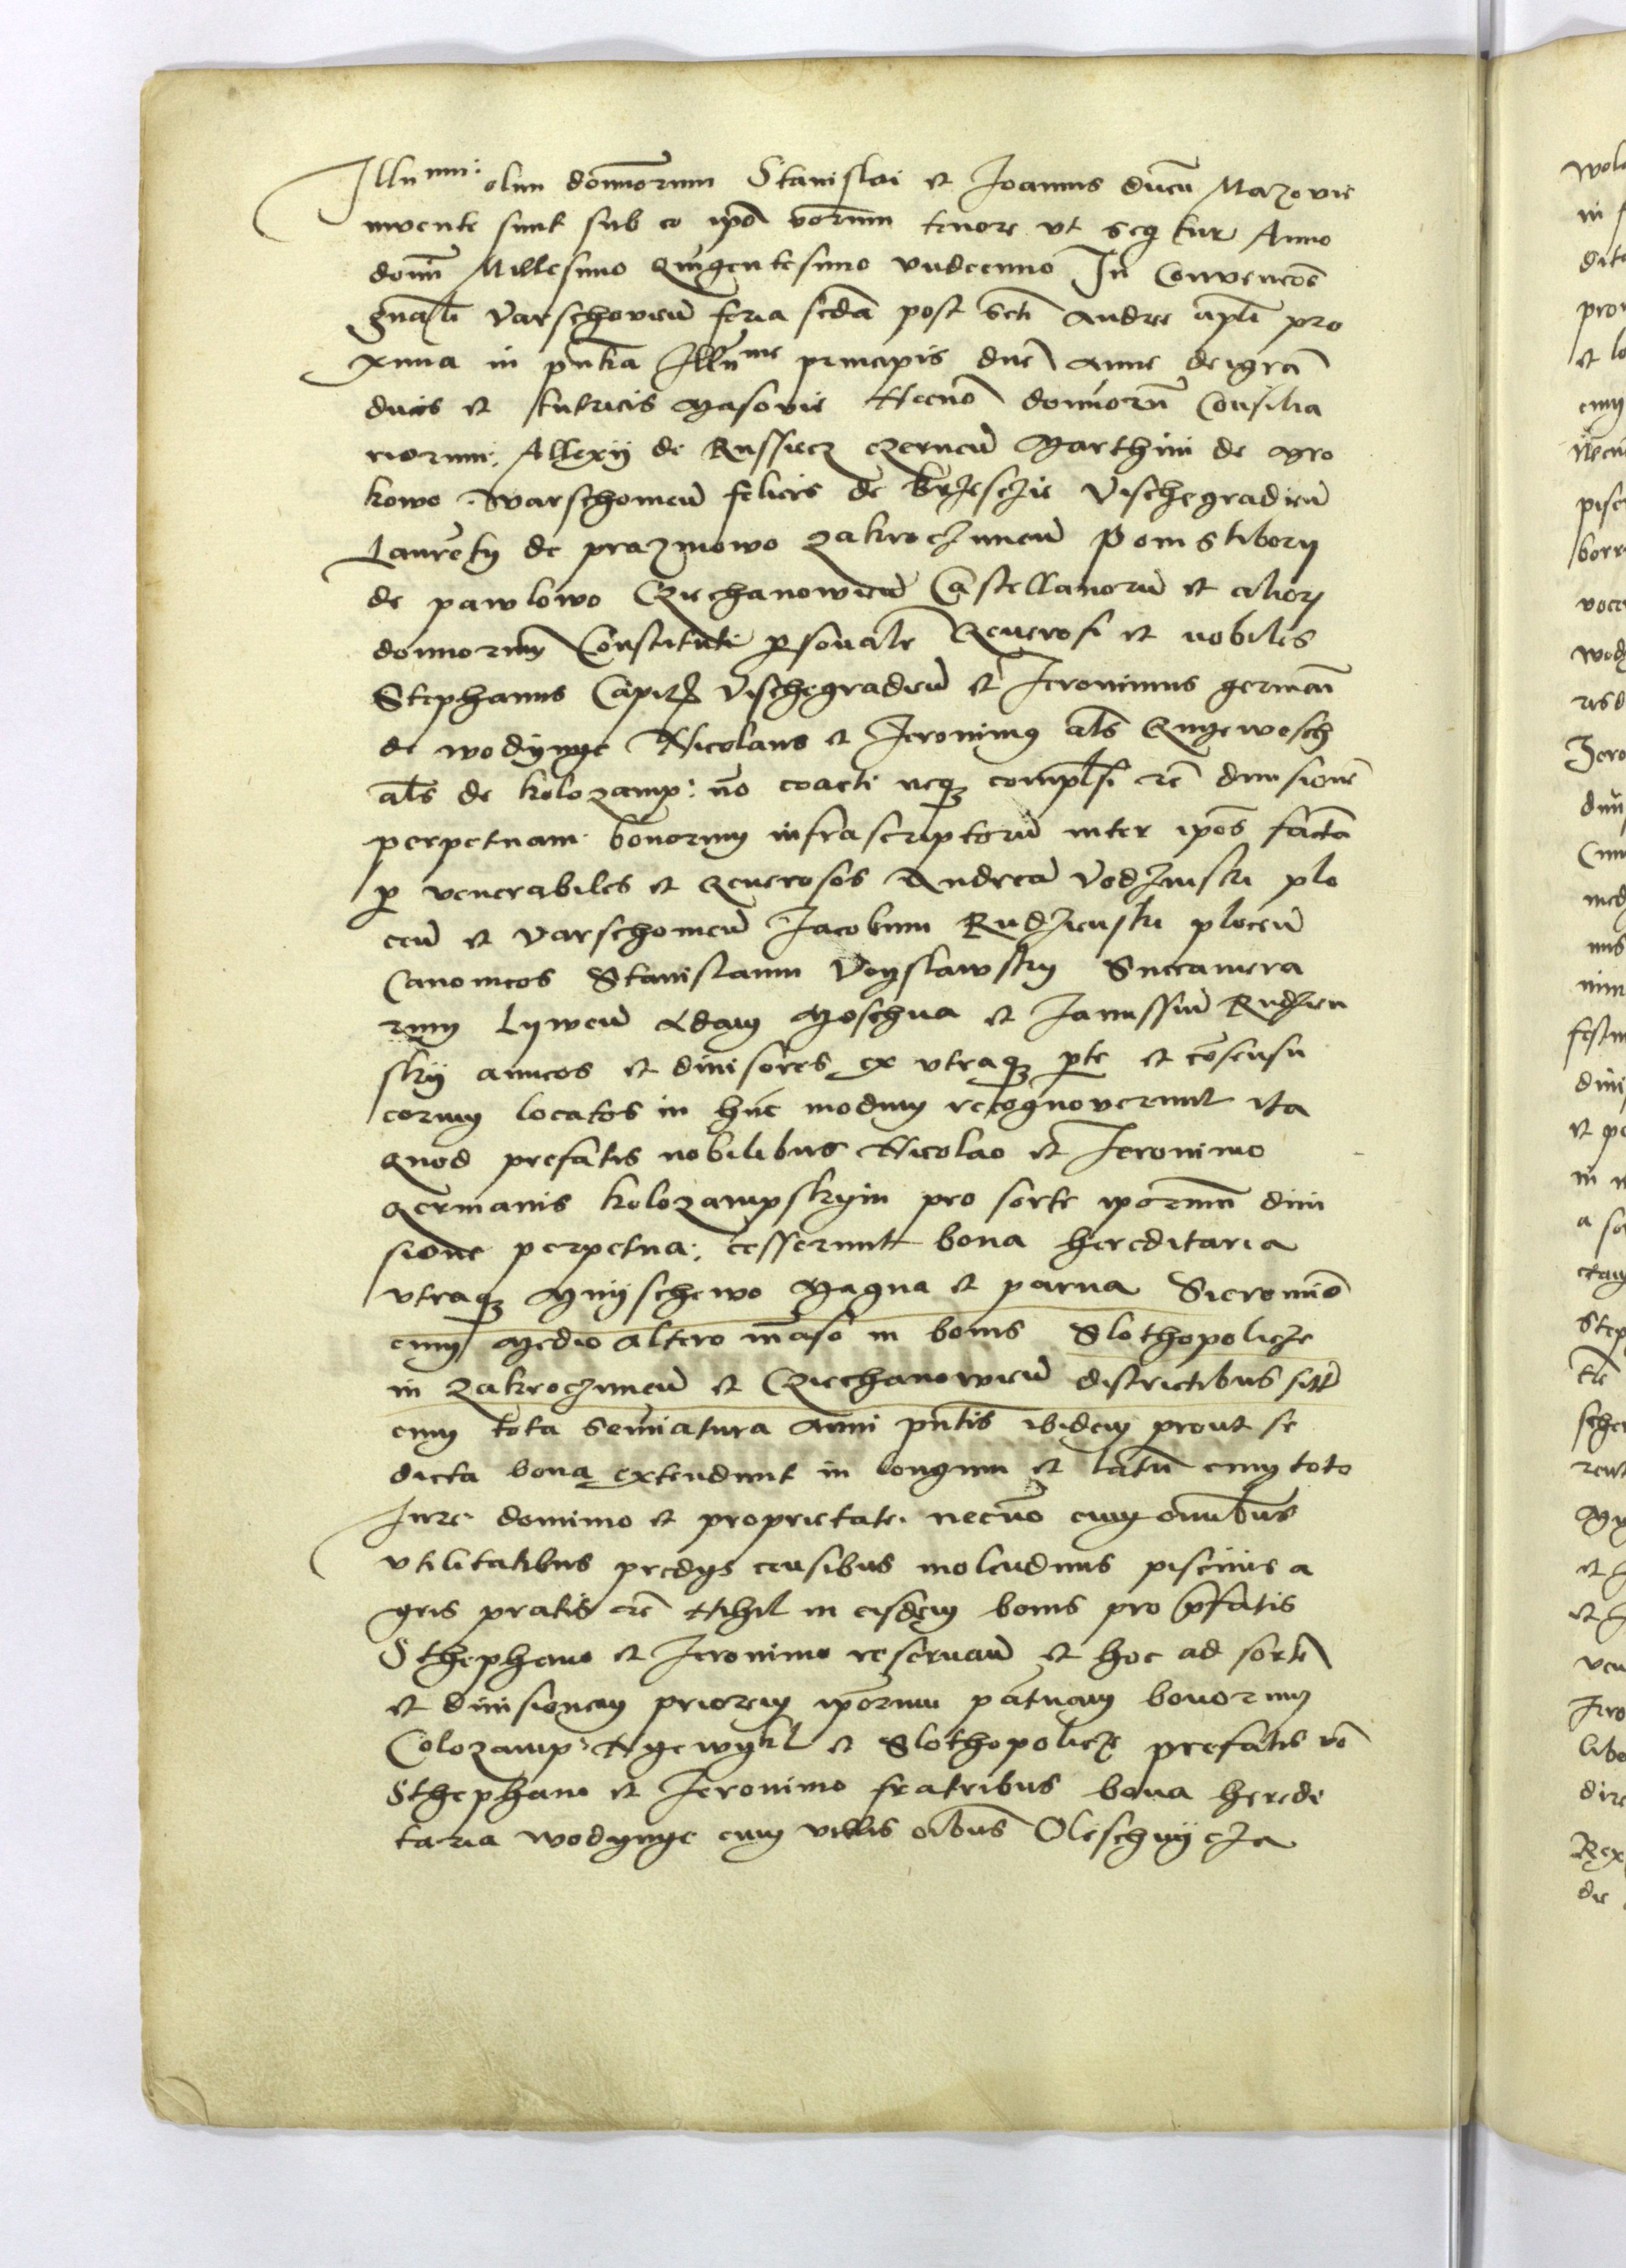 Illumi: olim domorum Stanislai et Joannis ducu Mazovie
invente sunt sub eo ipo verum tenore ut seq tur Anno
domi Millesimo Quigentesimo vndecimo In Convencoe
gnali Varschovien feria scda post scti Andree apli pro
xima in pntia Illume principis dne Anne dei gra
ducis et tutricis Masovie Necno domorum Consilia
riorum Allexÿ de Russiecz czernen Marthini de Mro
kowo Warschouien felicis de Brzesczie Vischegradien
Laurety de prazmowo zakroczimen Pomstibory
de pawlowo Cziechanowien Castellanoru et alior
domorum Constituti psonale Generosi et nobiles
Stephanus Capit Vischegradien et Jeronimus germai
de wodÿnge Nicolaus et Jeronimus als
als de kolozamp: no coacti neq complsi etc diuisione
perpetuam bonorum infrascriptoru inter ipos facta
p venerabiles et Generosos Andrea Vodzinski plo
cen et Varschouien Jacobum Rudzienski plocen
Canonicos Stanislaum Voyslawsky Succamera
rium Lÿwen Adam Moschna et Janussiu Rudzien
skÿ amicos et diuisores ex vtraq pte et cosensu
eorum locatos in huc modum recognoverunt ita
Quod prefatis nobilibus Nicolao et Jeronimo
Germanis kolozampskyin pro sorte ipormm diui
sione perpetua: cesserunt bona hereditaria
vtraq Mnÿschewo Magna et parua Sieromino
cum Medio altero maso in bonis Slothopolicze
in zakroczimen et Cziechanowien districtibus sitt
cum tota seminatura anni pntis ibidem prout se
dicta bona extendunt in longum et latu cum toto
Jure dominio et proprietate necno cum omibus
vtilitatibus predys censibus molendinis piscinis a
gris pratis etc Nihil in eisdem bonis pro pfatis
Sthephano et Jeronimo reseruan et hoc ad sorte
et diuisionem priorem iporum patruam bonorum
Colozamp Nyewykl et Slothopolicze prefatis vo
Sthephano et Jeronimo fratribus bona heredi
taria wodynge cum villis oibus Oleschnÿcza